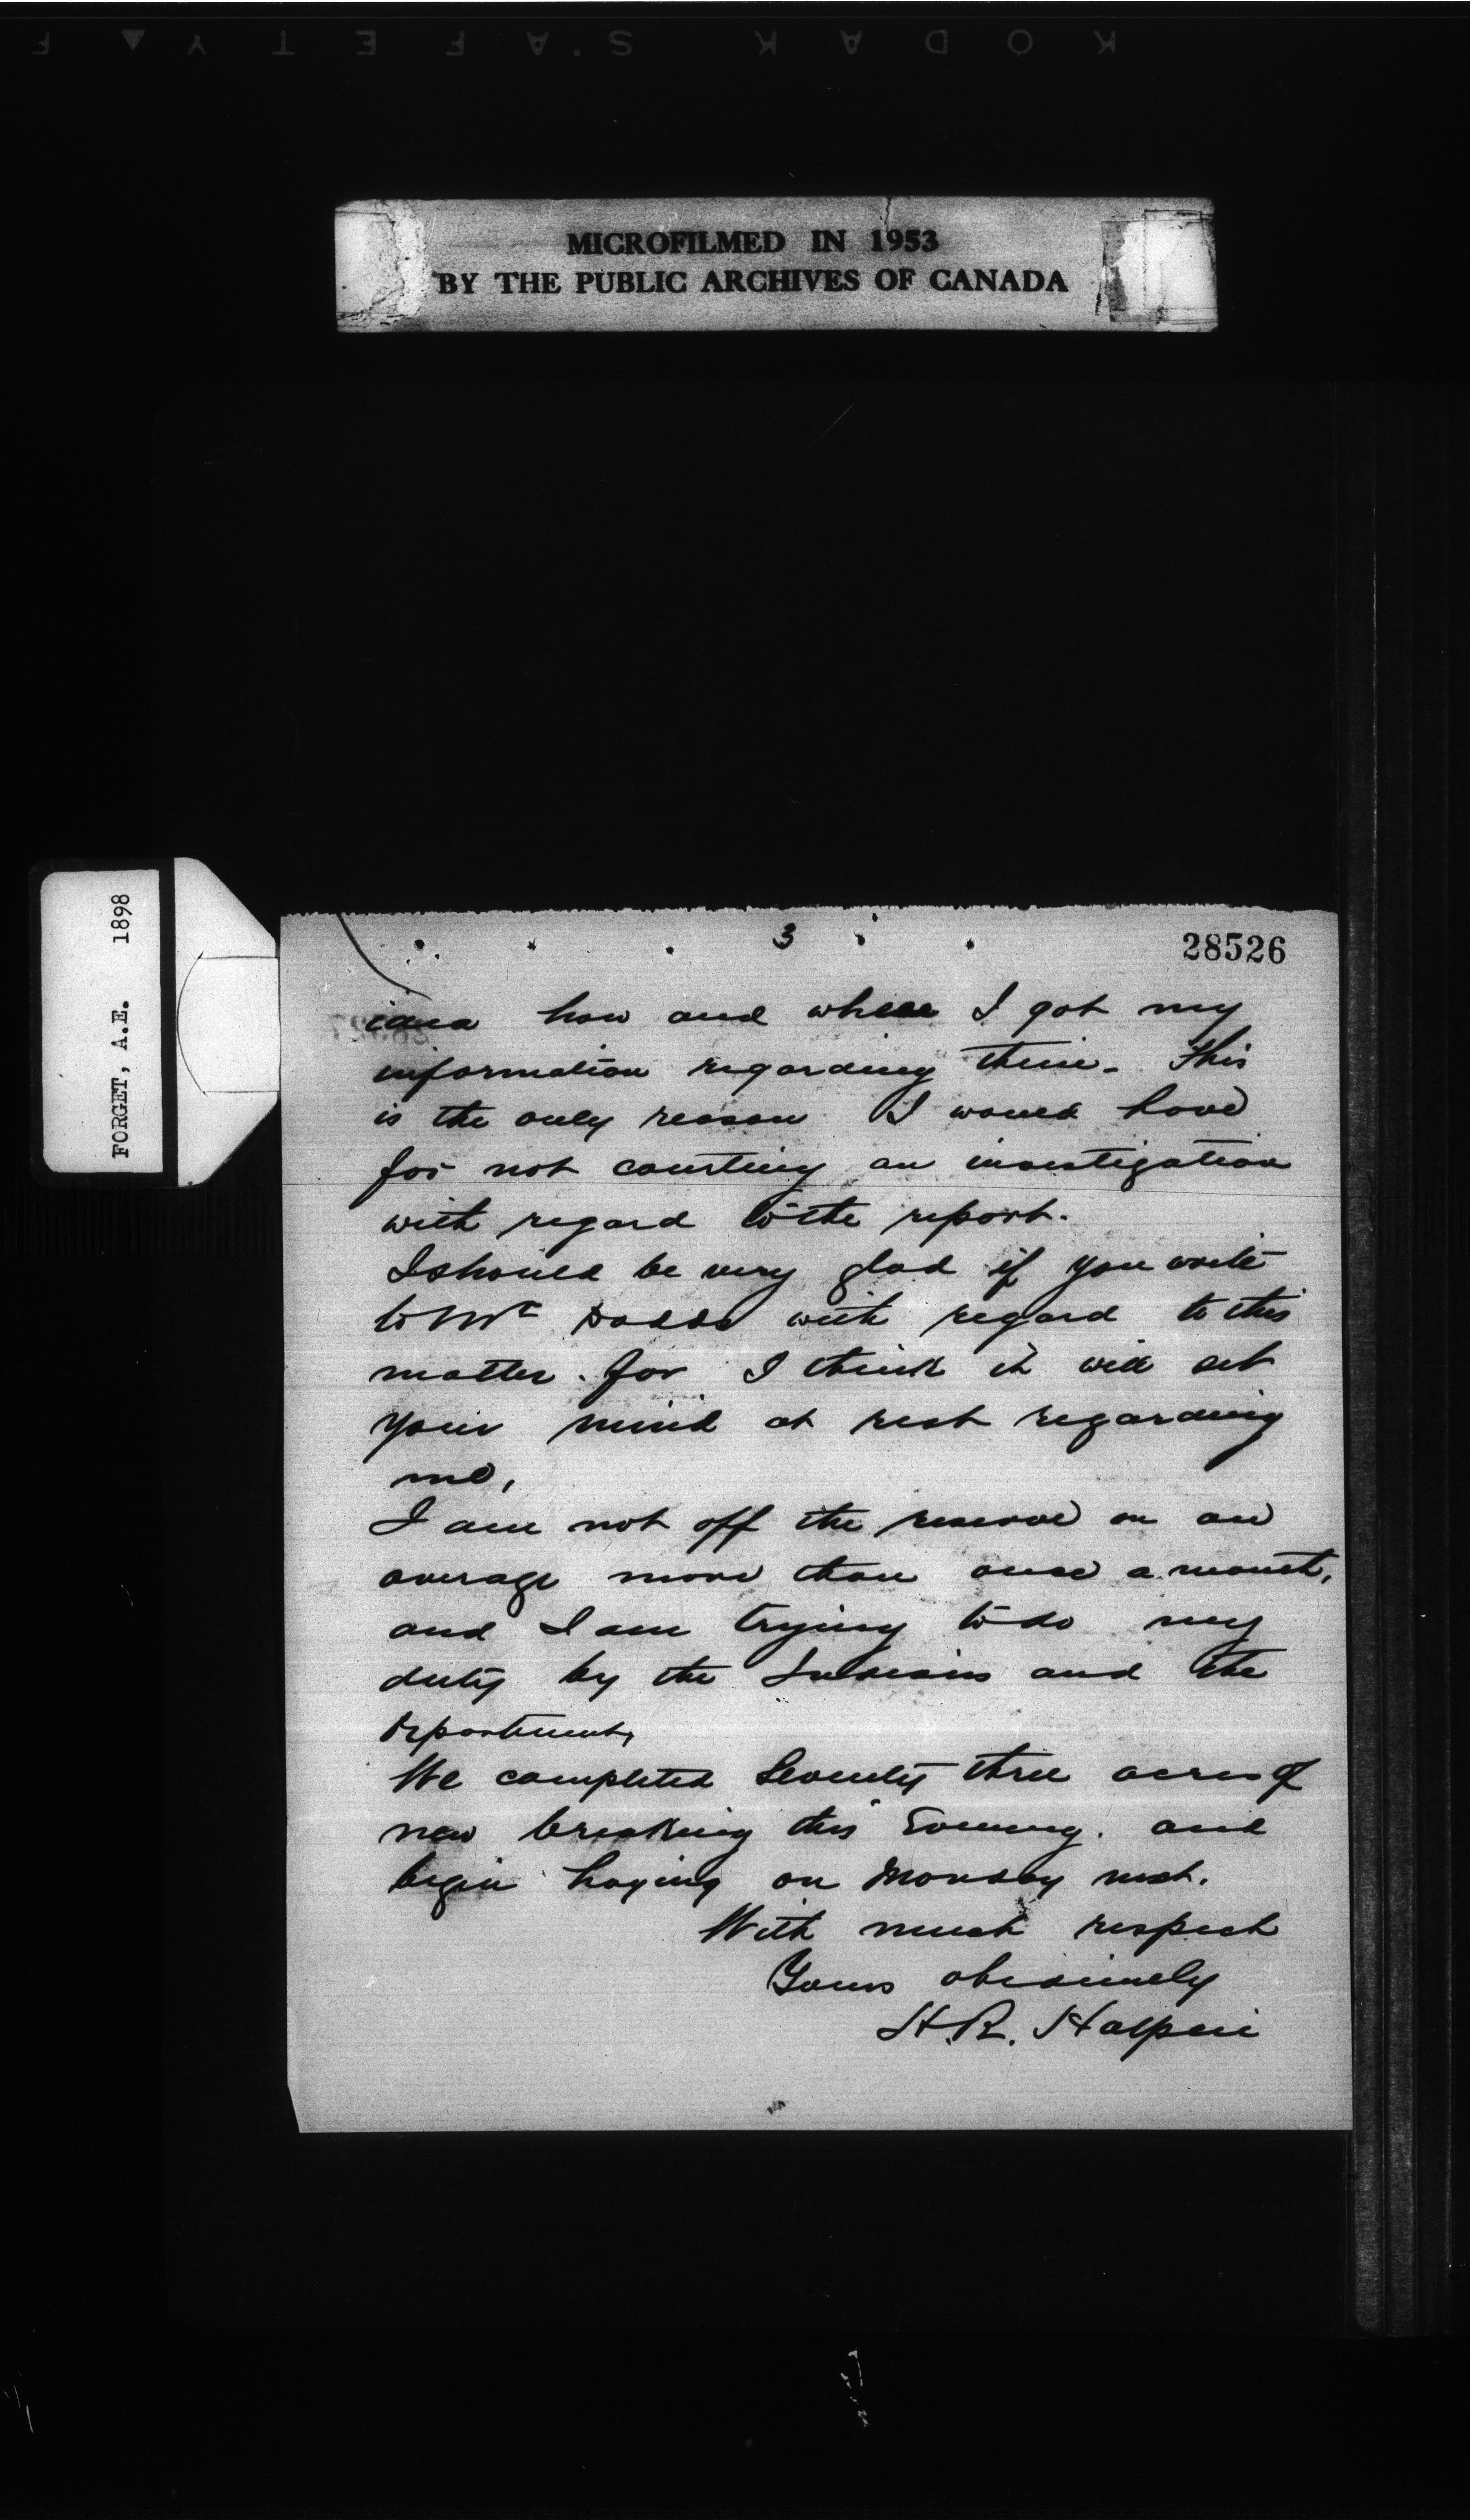 KODAK S'AFETY
MICROFILMED IN 1953
BY THE PUBLIC ARCHIVES OF CANADA
FORGET, A.E. 1898
3
28526
idea how and where I got my
information regarding them. This
is the only reason I would have
for not courting an investigation
with regard to the report.
I should be very glad if you write
to Mr Dodds with regard to this
matter. for I think it will set
your mind at rest regarding
me,
I am not off the reserve on an
average more than once a month,
and I am trying to do my
duty by the Indians and the
Department,
We completed Seventy three acres of
new breaking this Evening. and
begin haying on Monday next.
With much respect
Yours obediently
H.R. Halpin